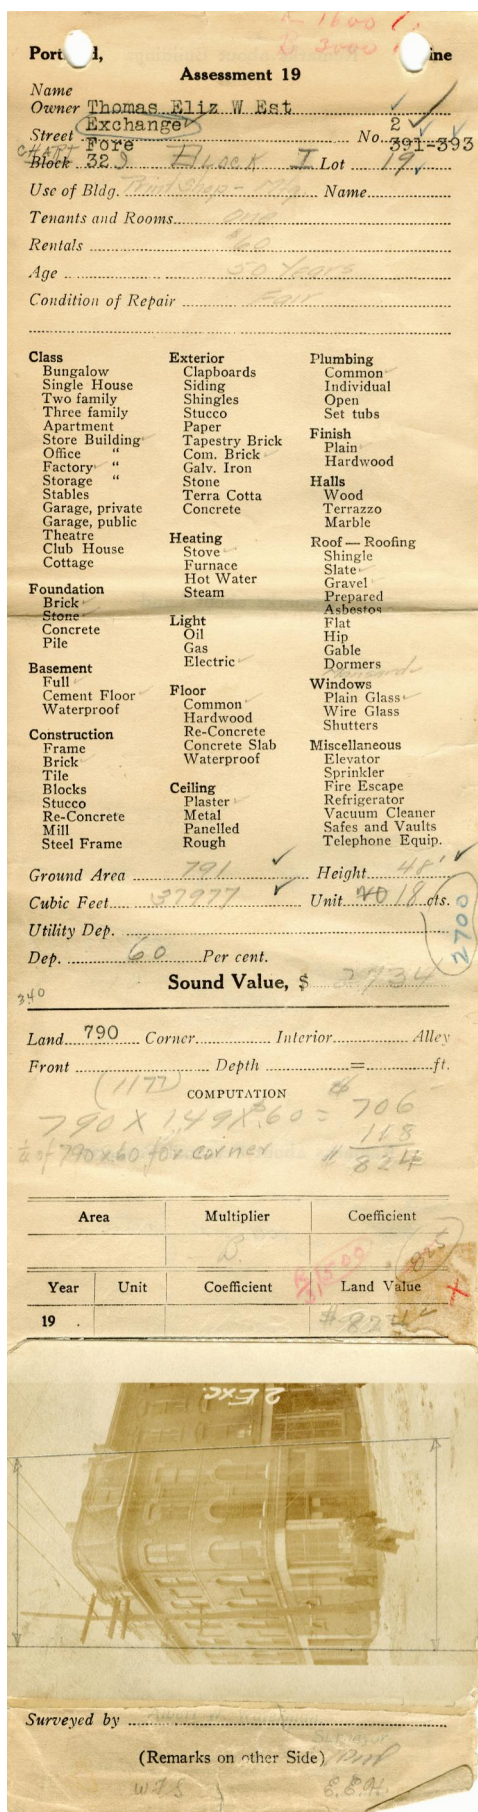 L 1600
B 3000
Port d, ine
Assessment 19
Name
Owner Thomas Eliz W Est
Exchange 2
Street Fore No. 391-393
CHART
Block 32 Block I Lot 19
Use of Bldg. Print Shop - Mfg. Name
Tenants and Rooms one
Rentals $60
Age 50 Years
Condition of Repair Fair
Class
Bungalow
Single House
Two family
Three family
Apartment
Store Building
Office "
Factory "
Storage "
Stables
Garage, private
Garage, public
Theatre
Club House
Cottage
Foundation
Brick
Stone
Concrete
Pile
Basement
Full
Cement Floor
Waterproof
Construction
Frame
Brick
Tile
Blocks
Stucco
Re-Concrete
Mill
Steel Frame
Exterior
Clapboards
Siding
Shingles
Stucco
Paper
Tapestry Brick
Com. Brick
Galv. Iron
Stone
Terra Cotta
Concrete
Heating
Stove
Furnace
Hot Water
Steam
Light
Oil
Gas
Electric
Floor
Common
Hardwood
Re-Concrete
Concrete Slab
Waterproof
Ceiling
Plaster
Metal
Panelled
Rough
Plumbing
Common
Individual
Open
Set tubs
Finish
Plain
Hardwood
Halls
Wood
Terrazzo
Marble
Roof — Roofing
Shingle
Slate
Gravel
Prepared
Asbestos
Flat
Hip
Gable
Dormers
Mansard
Windows
Plain Glass
Wire Glass
Shutters
Miscellaneous
Elevator
Sprinkler
Fire Escape
Refrigerator
Vacuum Cleaner
Safes and Vaults
Telephone Equip.
Ground Area 791 Height 48'
Cubic Feet 37977 Unit 18 cts.
Utility Dep.
2700
Dep. 60 Per cent.
Sound Value, $ 2734
340
Land 790 Corner Interior Alley
Front Depth = ft.
(1177)
COMPUTATION
790 X 1.49 X $.60 = $ 706
118
1/4 of 790 x 60 for corner $ 824
Area Multiplier Coefficient
B. 825
Year Unit Coefficient Land Value
1500
19 . $ 824
2 Exc.
Surveyed by
(Remarks on other Side)
WJS
E.E.H.